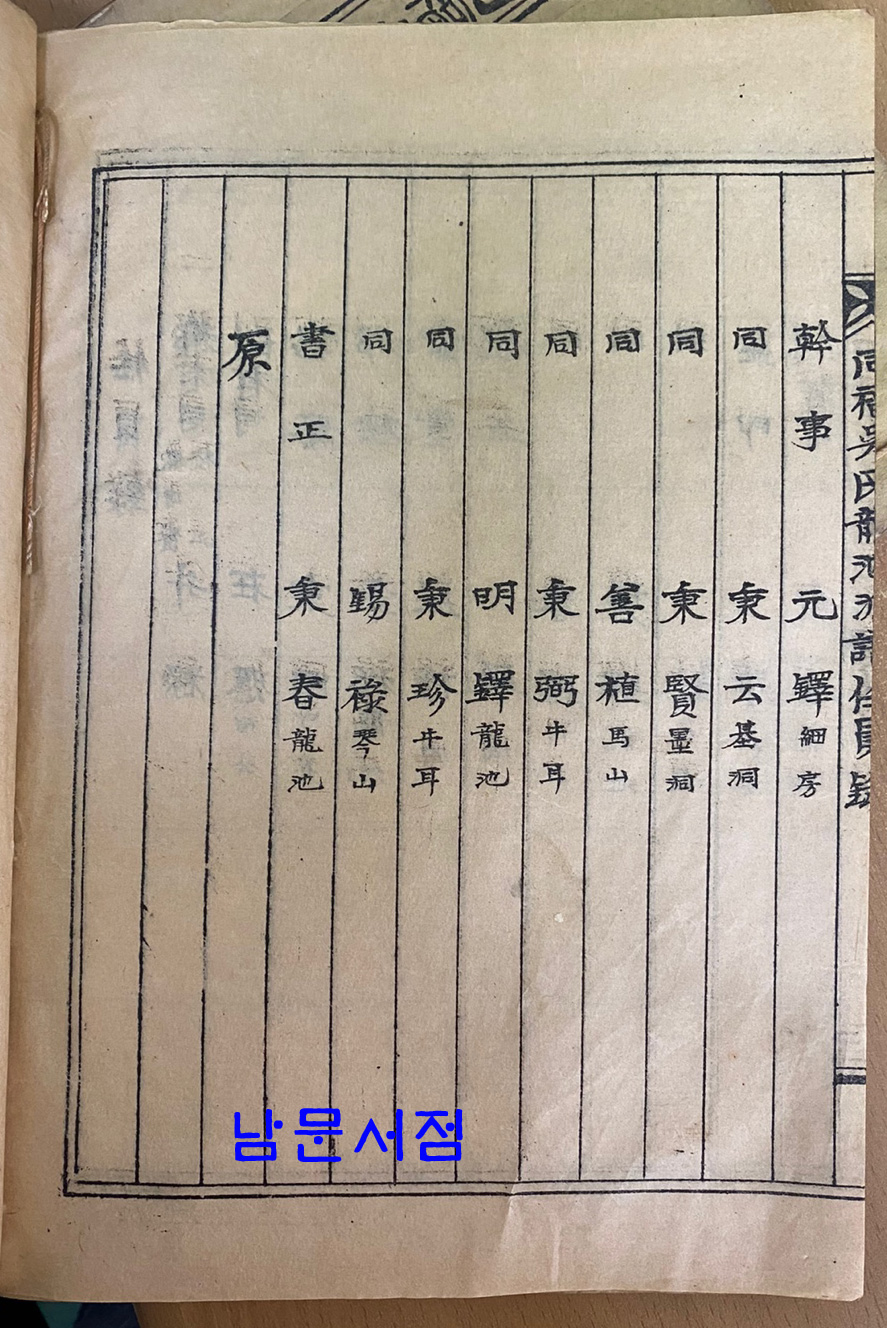 同福吳氏龍池派譜任員錄
幹事 元鐸 細房
同 秉云 基洞
同 秉賢 墨洞
同 善植 馬山
同 秉弼 牛耳
同 明鐸 龍池
同 秉珍 牛耳
同 錫祿 琴山
書正 秉春 龍池
原
남문서점